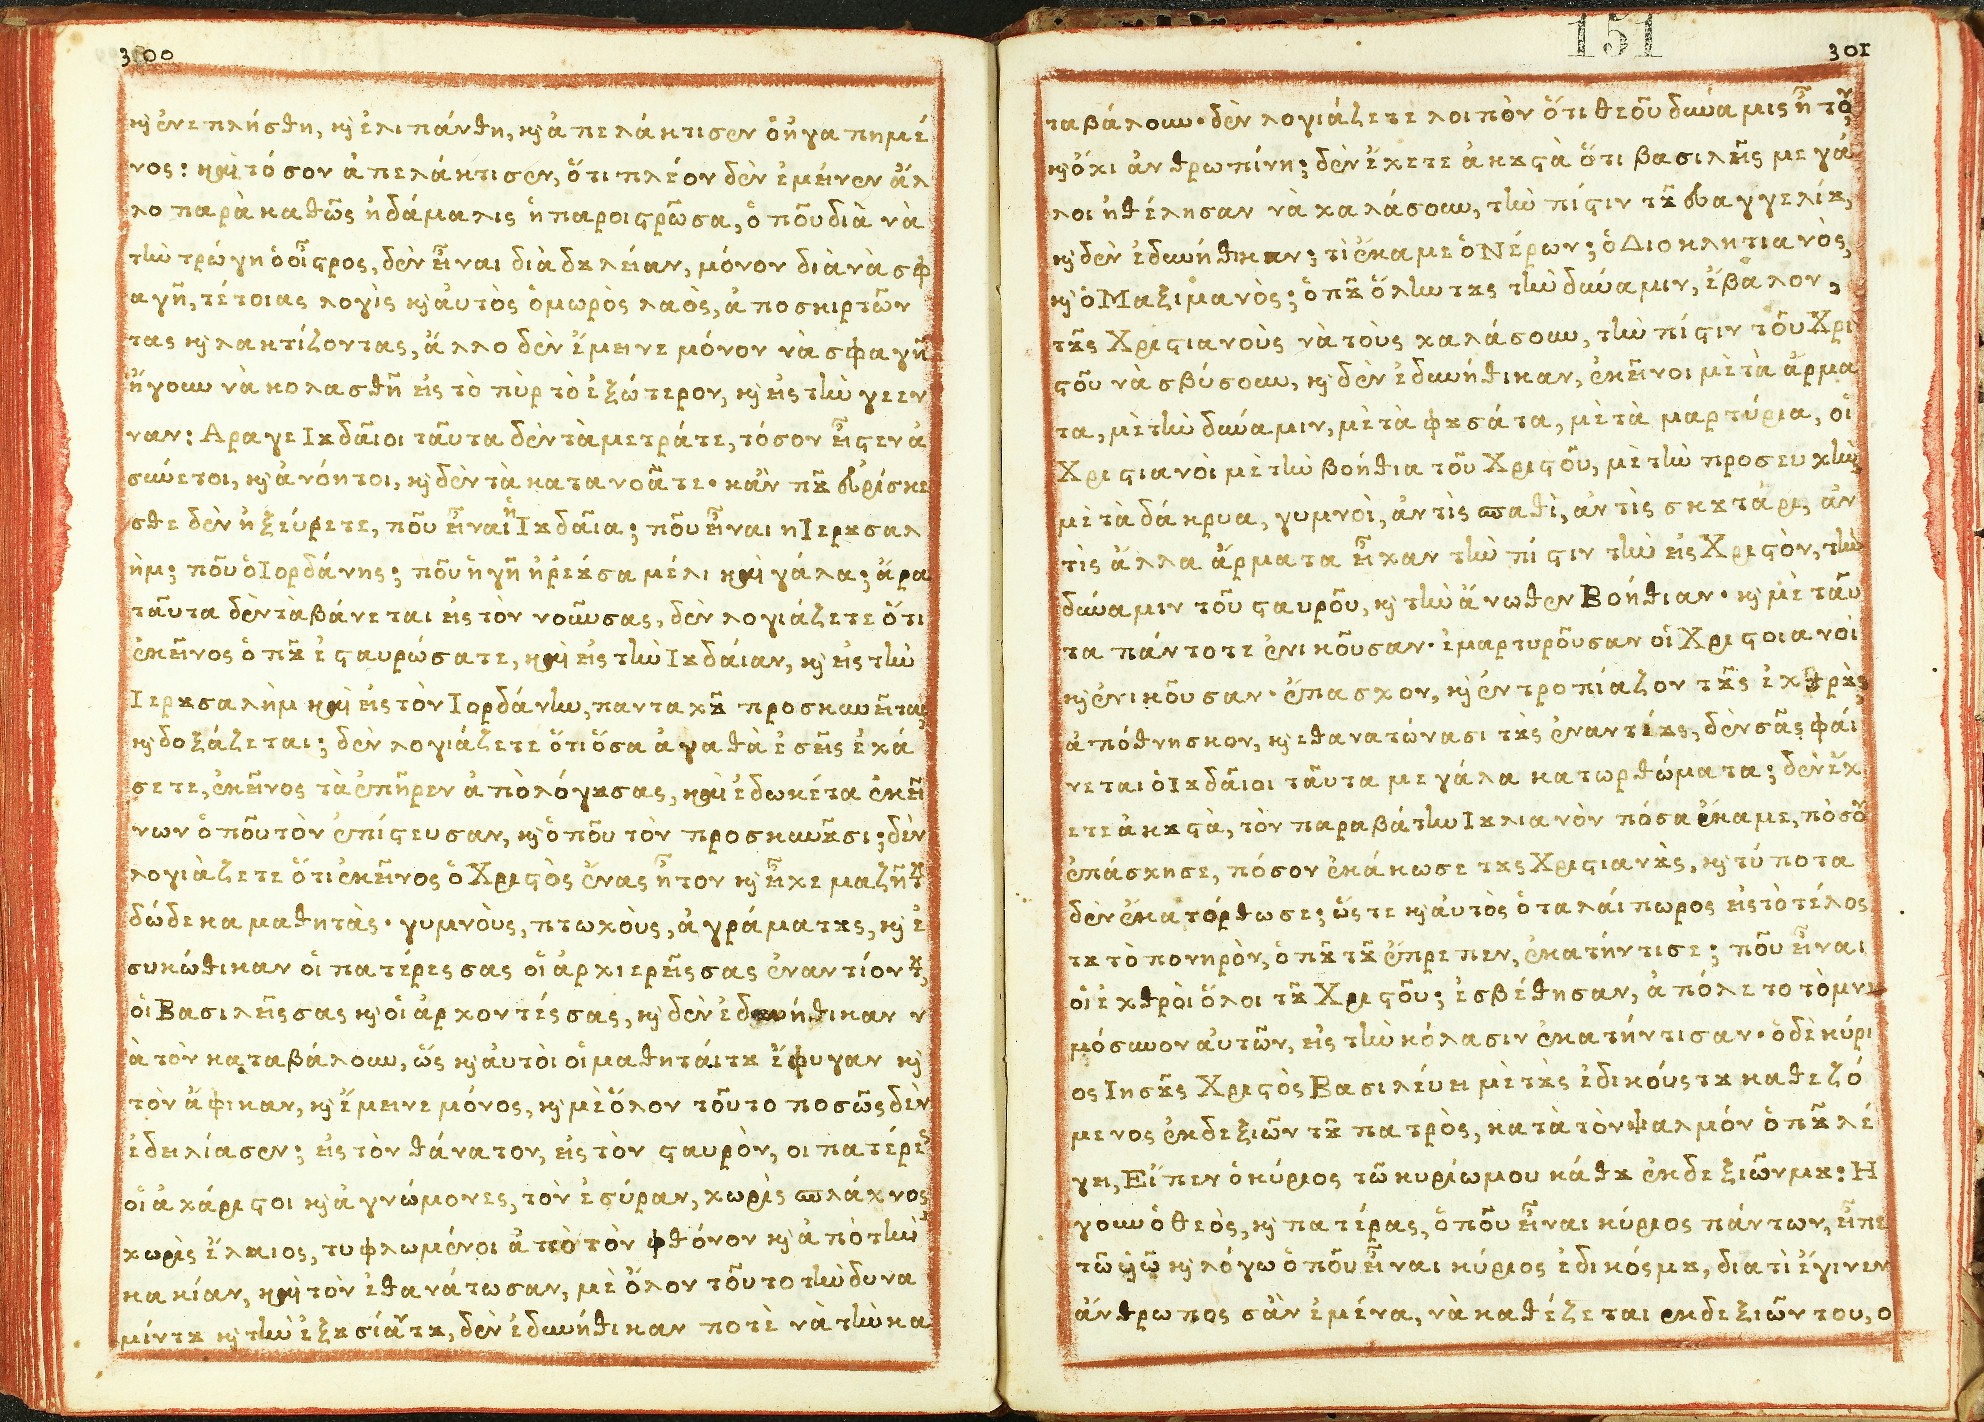 300
κ̀ ἐνεπλήσθη, κ̀ ἐλιπάνθη, κ̀ ἀπελάκτισεν ὁ ἠγαπημέ
νος: καὶ τόσον ἀπελάκτισεν, ὅτι πλέον δὲν ἐμείνεν ἄλ
λο παρὰ καθῶς ἡ δάμαλις ἡ παροιςρῶσα, ὁ ποῦ διὰ νὰ
τὴν τρώγη ὁ οἶςρος, δὲν εἶναι διὰ δȣλείαν, μόνον διὰ νὰ σφ
αγῆ, τέτοιας λογὶς κ̀ αὐτὸς ὁ μωρὸς λαὸς, ἀποσκιρτῶν
τας κ̀ λακτίζοντας, ἄλλο δὲν ἔμεινε μόνον νὰ σφαγῆ
ἤγουν νὰ κολασθῆ εἰς τὸ πὺρ τὸ ἐξώτερον, κ̀ εἰς τὴν γεεν
ναν: Αραγε Ιȣδαῖοι ταῦτα δὲν τὰ μετράτε, τόσον εἶςεν ἀ
σύνετοι, κ̀ ἀνόητοι, κ̀ δὲν τὰ κατανοᾶτε· κἂν πȣ εὑρίσκε
σθε δὲν ἠξεύρετε, ποῦ εἶναι ἡ Ιȣδαῖα; ποῦ εἶναι η Ιερȣσαλ
ὴμ; ποῦ ὁ Ιορδάνης; ποῦ ἡ γῆ ἡ ρέȣσα μέλι καὶ γάλα; ἄρα
ταῦτα δὲν τὰ βάνεται εἰς τὸν νοῦν σας, δὲν λογιάζετε ὅτι
ἐκεῖνος ὁ πȣ ἐςαυρώσατε, καὶ εἰς τὴν Ιȣδάιαν, κ̀ εἰς τὴν
Ιερȣσαλὴμ καὶ εἰς τὸν Ιορδάνην, πανταχȣ προσκυνεῖται
κ̀ δοξάζεται; δὲν λογιάζετε ὅτι ὅσα ἀγαθὰ ἐσεῖς ἐχά
σετε, ἐκεῖνος τὰ ἐπῆρεν ἀπὸ λόγȣ σας, καὶ ἐδωκέ τα ἐκεῖ
νων ὁ ποῦ τὸν ἐπίςευσαν, κ̀ ὁ ποῦ τὸν προσκυνȣσι; δὲν
λογιάζετε ὅτι ἐκεῖνος ὁ Χριςὸς ἕνας ἦτον κ̀ εἶχε μαζῆ τȣ
δώδεκα μαθητὰς· γυμνοὺς, πτωχοὺς, ἀγράματȣς, κ̀ ἐ
συκώθικαν οἱ πατέρες σας οἱ ἀρχιερεῖς σας ἐναντίον τȣ,
οἱ Βασιλεῖς σας κ̀ οἱ ἀρχοντές σας, κ̀ δὲν ἐδυνήθικαν ν
ὰ τὸν καταβάλουν, ὥς κ̀ αὐτὸι οἱ μαθητάι τȣ ἔφυγαν κ̀
τὸν ἄφικαν, κ̀ ἔμεινε μόνος, κ̀ μὲ ὅλον τοῦτο ποσῶς δὲν
ἐδειλίασεν; εἰς τὸν θάνατον, εἰς τὸν ςαυρὸν, οι πατέρες
οἱ ἀχάριςοι κ̀ ἀγνώμονες, τὸν ἐσύραν, χωρὶς σπλάχνος
χωρὶς ἔλαιος, τυφλωμένοι ἀπὸ τὸν φθόνον κ̀ ἀπὸ τὴν
κακίαν, καὶ τὸν ἐθανάτωσαν, μὲ ὅλον τοῦτο τὴν δυνα
μίν τȣ κ̀ τὴν ἐξȣσίαν τȣ, δὲν ἐδυνήθικαν ποτὲ νὰ τὴν κα
151
301
ταβάλουν· δὲν λογιάζετε λοιπὸν ὅτι θεοῦ δύναμις ἦτον
κ̀ ὄχι ἀνθρωπίνη; δὲν ἔχετε ἀκȣςὰ ὅτι βασιλεῖς μεγά
λοι ἠθέλησαν νὰ χαλάσουν, τὴν πίςιν τȣ εὐαγγελίȣ,
κ̀ δὲν ἐδυνήθικαν; τὶ ἔκαμε ὁ Νέρων; ὁ Διοκλητιανὸς,
κ̀ ὁ Μαξιμανὸς; ὁ πȣ ὅλην τȣς τὴν δύναμιν, ἔβαλον,
τȣς Χριςιανοὺς νὰ τοὺς χαλάσουν, τὴν πίςιν τοῦ Χρι
ςοῦ νὰ σβύσουν, κ̀ δὲν ἐδυνήθικαν, ἐκεῖνοι μὲ τὰ ἄρμα
τα, μὲ τὴν δύναμιν, μὲ τὰ φȣσάτα, μὲ τὰ μαρτύρια, οἱ
Χριςιανὸι μὲ τὴν βοήθια τοῦ Χριςοῦ, μὲ τὴν προσευχὴν
μὲ τὰ δάκρυα, γυμνὸι, ἀντὶς σπαθὶ, ἀντὶς σκȣτάρι, ἀν
τὶς ἄλλα ἄρματα εἶχαν τὴν πίςιν τὴν εἰς Χριςὸν, τὴν
δύναμιν τοῦ ςαυροῦ, κ̀ τὴν ἄνωθεν Βοήθιαν· κ̀ μὲ ταῦ
τα πάντοτε ἐνικοῦσαν· ἐμαρτυροῦσαν οἱ Χριςοιανὸι
κ̀ ἐνικοῦσαν· ἔπασχον, κ̀ ἐντροπίαζον τȣς ἐχθρȣς
ἀπόθνησκον, κ̀ εθανατώνασι τȣς ἐναντίȣς, δὲν σᾶς φάι
νεται ὁ Ιȣδαῖοι ταῦτα μεγάλα κατωρθώματα; δὲν ἔχ
ετε ἀκȣςὰ, τὸν παραβάτην Ιȣλιανὸν πόσα ἔκαμε, πόσον
ἐπάσχησε, πόσον ἐκάκωσε τȣς Χριςιανȣς, κ̀ τύποτα
δὲν ἐκατόρθωσε; ὥςτε κ̀ αὐτὸς ὁ ταλάιπωρος εἰς τὸ τέλος
τȣ τὸ πονηρὸν, ὁ πȣ τȣ ἔπρεπεν, ἐκατήντισε; ποῦ εἶναι
οἱ ἐχθρὸι ὅλοι τȣ Χριςοῦ; ἐσβέθησαν, ἀπόλετο τὸ μνη
μόσυνον αὐτῶν, εἰς τὴν κόλασιν ἐκατήντισαν· ὁ δὲ κύρι
ος Ιησȣς Χριςὸς Βασιλέυει μὲ τȣς ἐδικούς τȣ καθεζό
μενος ἐκ δεξιῶν τȣ πατρὸς, κατὰ τὸν ψαλμόν ὁ πȣ λέ
γει, Εἴπεν ὁ κύριος τῶ κυρίω μου κάθȣ ἐκ δεξιῶν μȣ: Η
γουν ὁ θεὸς, κ̀ πατέρας, ὁ ποῦ εἶναι κύριος πάντων, εἶπε
τῶ ὑιῶ κ̀ λόγω ὁ ποῦ εἶναι κύριος ἐδικός μȣ, διατὶ ἔγινεν
ἄνθρωπος σὰν ἐμένα, νὰ καθέζεται εκ δεξιῶν του, ο